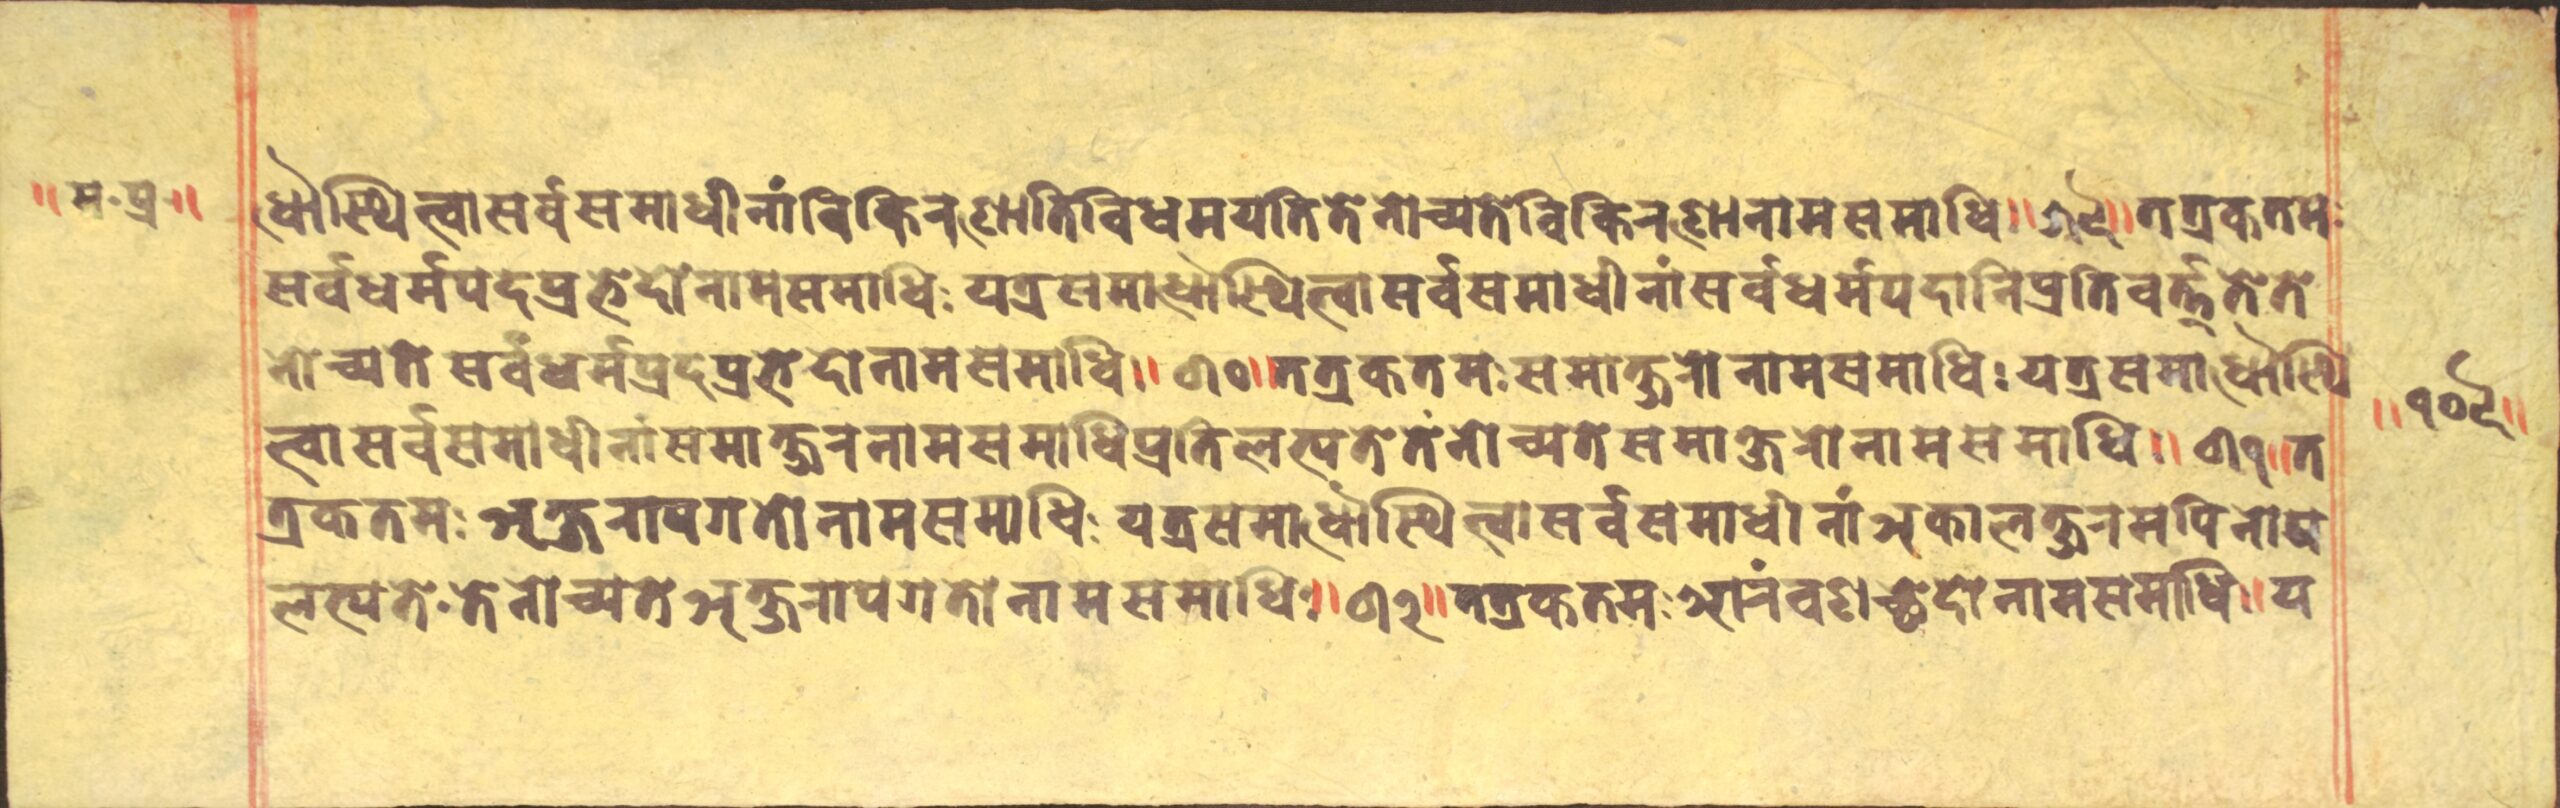 ॥ म. प्र ॥
धौ स्थित्वा सर्वसमाधीनां विकिनणाति विधमयति तेनोच्यते विकिनणा नाम समाधि ॥ ७९ ॥ तत्र कतमः
सर्वधर्मपदप्रभेदो नाम समाधिः यत्र समाधौ स्थित्वा सर्वसमाधीनां सर्वधर्मपदानि प्रतिवर्त्तते ते
नोच्यते सर्वधर्मप्रदप्रभेदो नाम समाधि ॥ ८० ॥ तत्र कतमः समाक्षनो नाम समाधिः यत्र समाधौ स्थि
त्वा सर्वसमाधीनां समाक्षन नाम समाधि प्रतिलभ्यते तेनोच्यते समाक्षरो नाम समाधि ॥ ८१ ॥ त
त्र कतमः अक्षनापगतो नाम समाधिः यत्र समाधौ स्थित्वा सर्वसमाधीनां अकालक्षनमपि नोप
लभ्यते तेनोच्यते अक्षनापगतो नाम समाधि ॥ ८२ ॥ तत्र कतमः आनंवणच्छेदो नाम समाधि ॥ य
॥ १०९ ॥